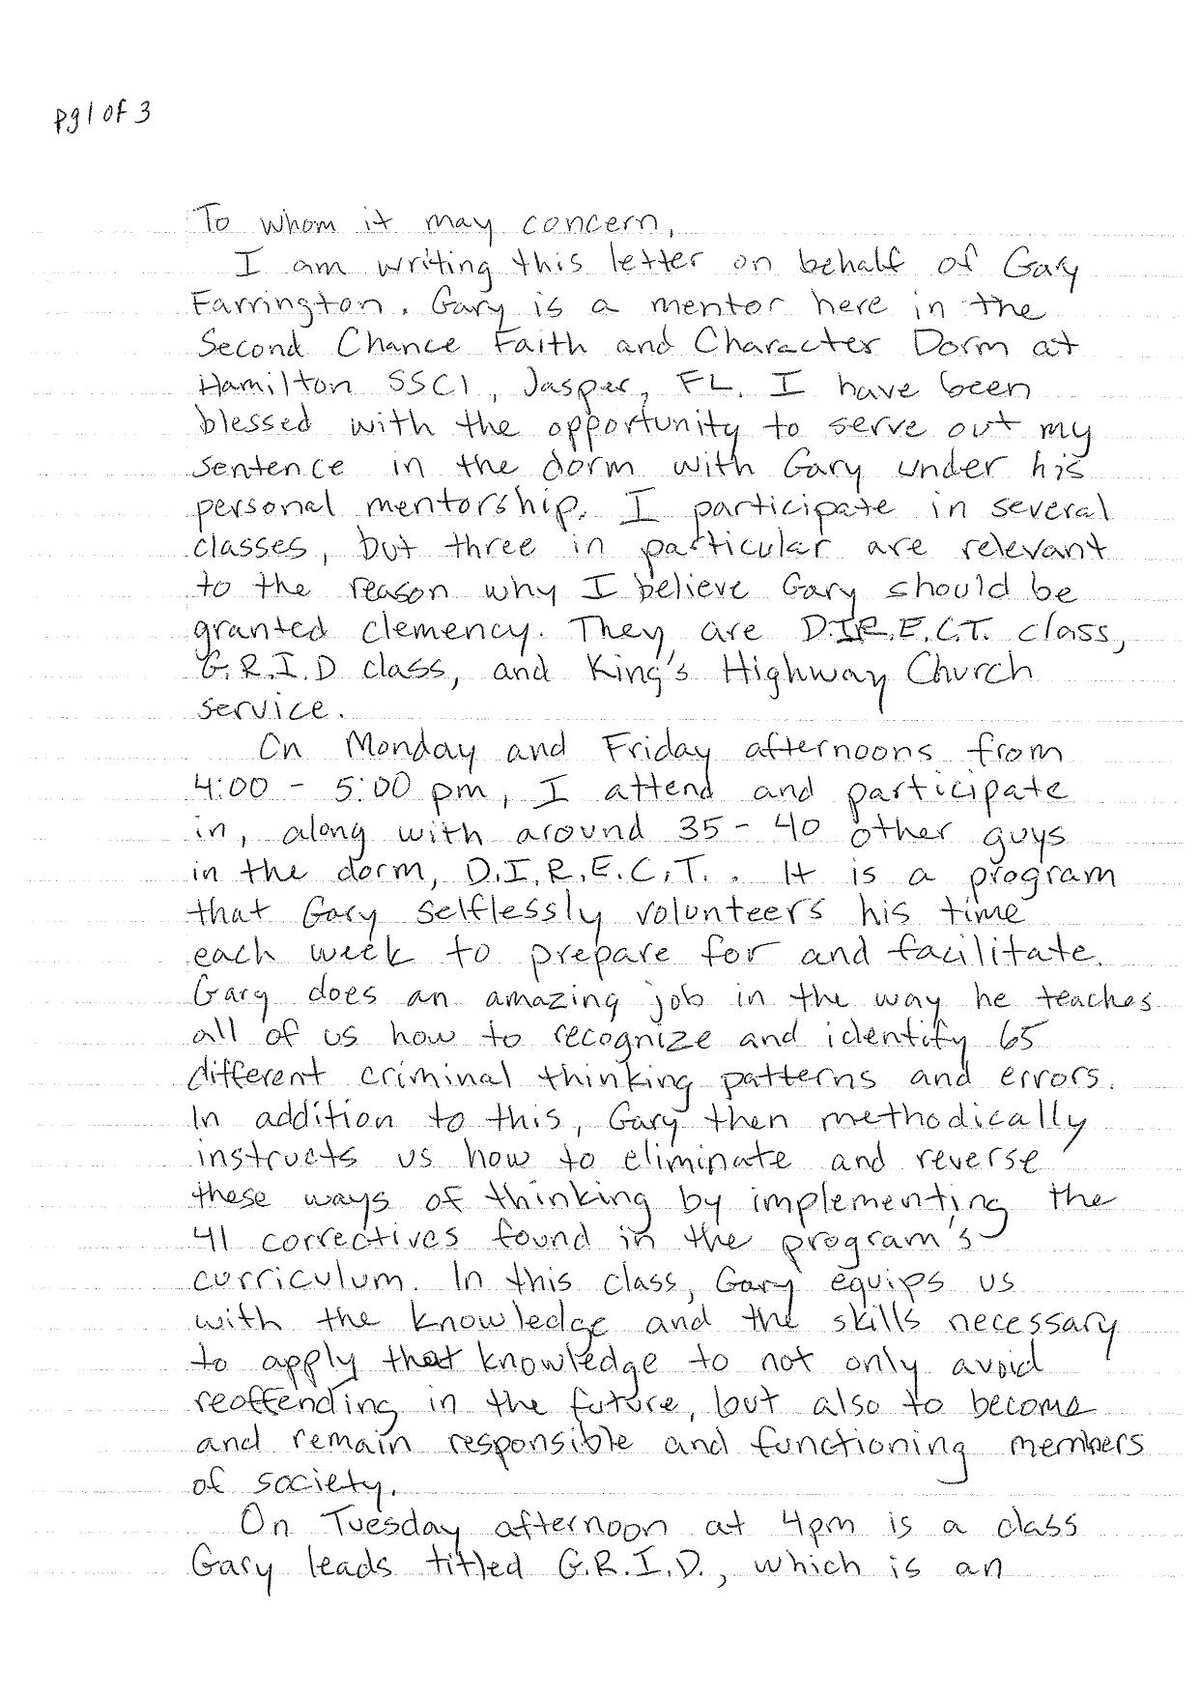 pg 1 of 3
To whom it may concern,
I am writing this letter on behalf of Gary
Farrington. Gary is a mentor here in the
Second Chance Faith and Character Dorm at
Hamilton SSCI, Jasper, FL. I have been
blessed with the opportunity to serve out my
sentence in the dorm with Gary under his
personal mentorship. I participate in several
classes, but three in particular are relevant
to the reason why I believe Gary should be
granted clemency. They are D.I.R.E.C.T. class,
G.R.I.D class, and King's Highway Church
service.
On Monday and Friday afternoons from
4:00 - 5:00 pm, I attend and participate
in, along with around 35-40 other guys
in the dorm, D.I.R.E.C.T.. It is a program
that Gary selflessly volunteers his time
each week to prepare for and facilitate.
Gary does an amazing job in the way he teaches
all of us how to recognize and identify 65
different criminal thinking patterns and errors.
In addition to this, Gary then methodically
instructs us how to eliminate and reverse
these ways of thinking by implementing the
41 correctives found in the program's
curriculum. In this class, Gary equips us
with the knowledge and the skills necessary
to apply that knowledge to not only avoid
reoffending in the future, but also to become
and remain responsible and functioning members
of society.
On Tuesday afternoon at 4pm is a class
Gary leads titled G.R.I.D., which is an